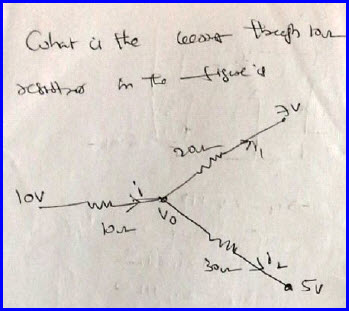 What is the through 10Ω
resistor in the figure is
7V
20Ω
i1
10V
i
10Ω
V0
30Ω
i2
5V